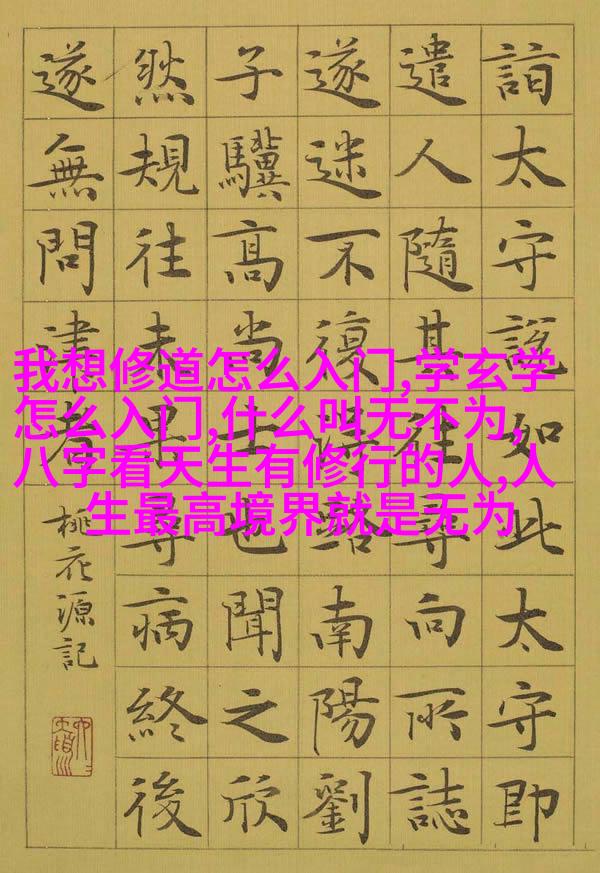 詣太守說如此太守即
遣人隨其往尋向所誌
遂迷不復得路南陽劉
子驥高尚士也聞之欣
然規往未果尋病終後
遂無問津者
桃花源記
我想修道怎么入门,学玄学
怎么入门,什么叫无不为,
八字看天生有修行的人,人
生最高境界就是无为